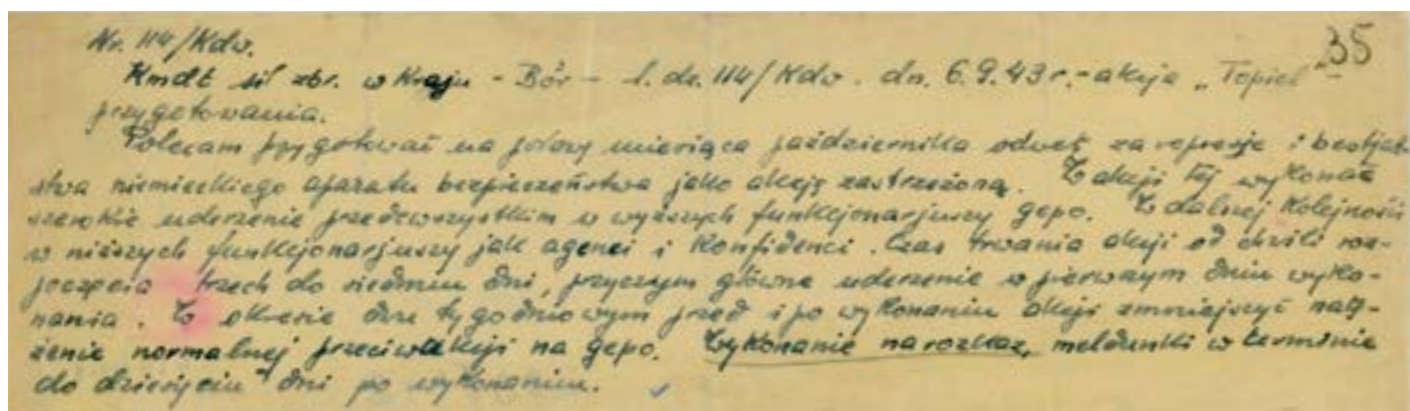 35
Nr. 114/Kdw.
Kmdt sił zbr. w Kraju - Bór - l. dz. 114/Kdw. dn. 6.9.43 r. - akcja „Topiel"
przygotowania.
Polecam przygotować na połowę miesiąca października odwet za represje i bestjal-
stwa niemieckiego aparatu bezpieczeństwa jako akcję zastrzeżoną. W akcji tej wykonać
szerokie uderzenie przedewszystkim w wyższych funkcjonarjuszy gepo. W dalszej kolejności
w niższych funkcjonarjuszy jak agenci i konfidenci. Czas trwania akcji od chwili roz-
poczęcia trzech do siedmiu dni, przyczym główne uderzenie w pierwszym dniu wyko-
nania. W okresie dwu tygodniowym przed i po wykonaniu akcji zmniejszyć natę-
żenie normalnej przeciwakcji na gepo. Wykonanie na rozkaz, meldunki w terminie
do dziesięciu dni po wykonaniu.